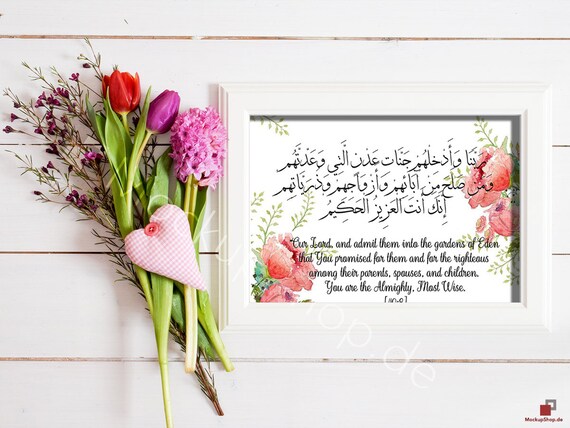 رَبَّنَا وَأَدْخِلْهُمْ جَنَّاتِ عَدْنٍ الَّتِي وَعَدْتَّهُم
وَمَن صَلَحَ مِنْ آبَائِهِمْ وَأَزْوَاجِهِمْ وَذُرِّيَّاتِهِمْ
إِنَّكَ أَنتَ الْعَزِيزُ الْحَكِيمُ
"Our Lord, and admit them into the gardens of Eden
that You promised for them and for the righteous
among their parents, spouses, and children.
You are the Almighty, Most Wise.
[40:8]
MockupShop.de